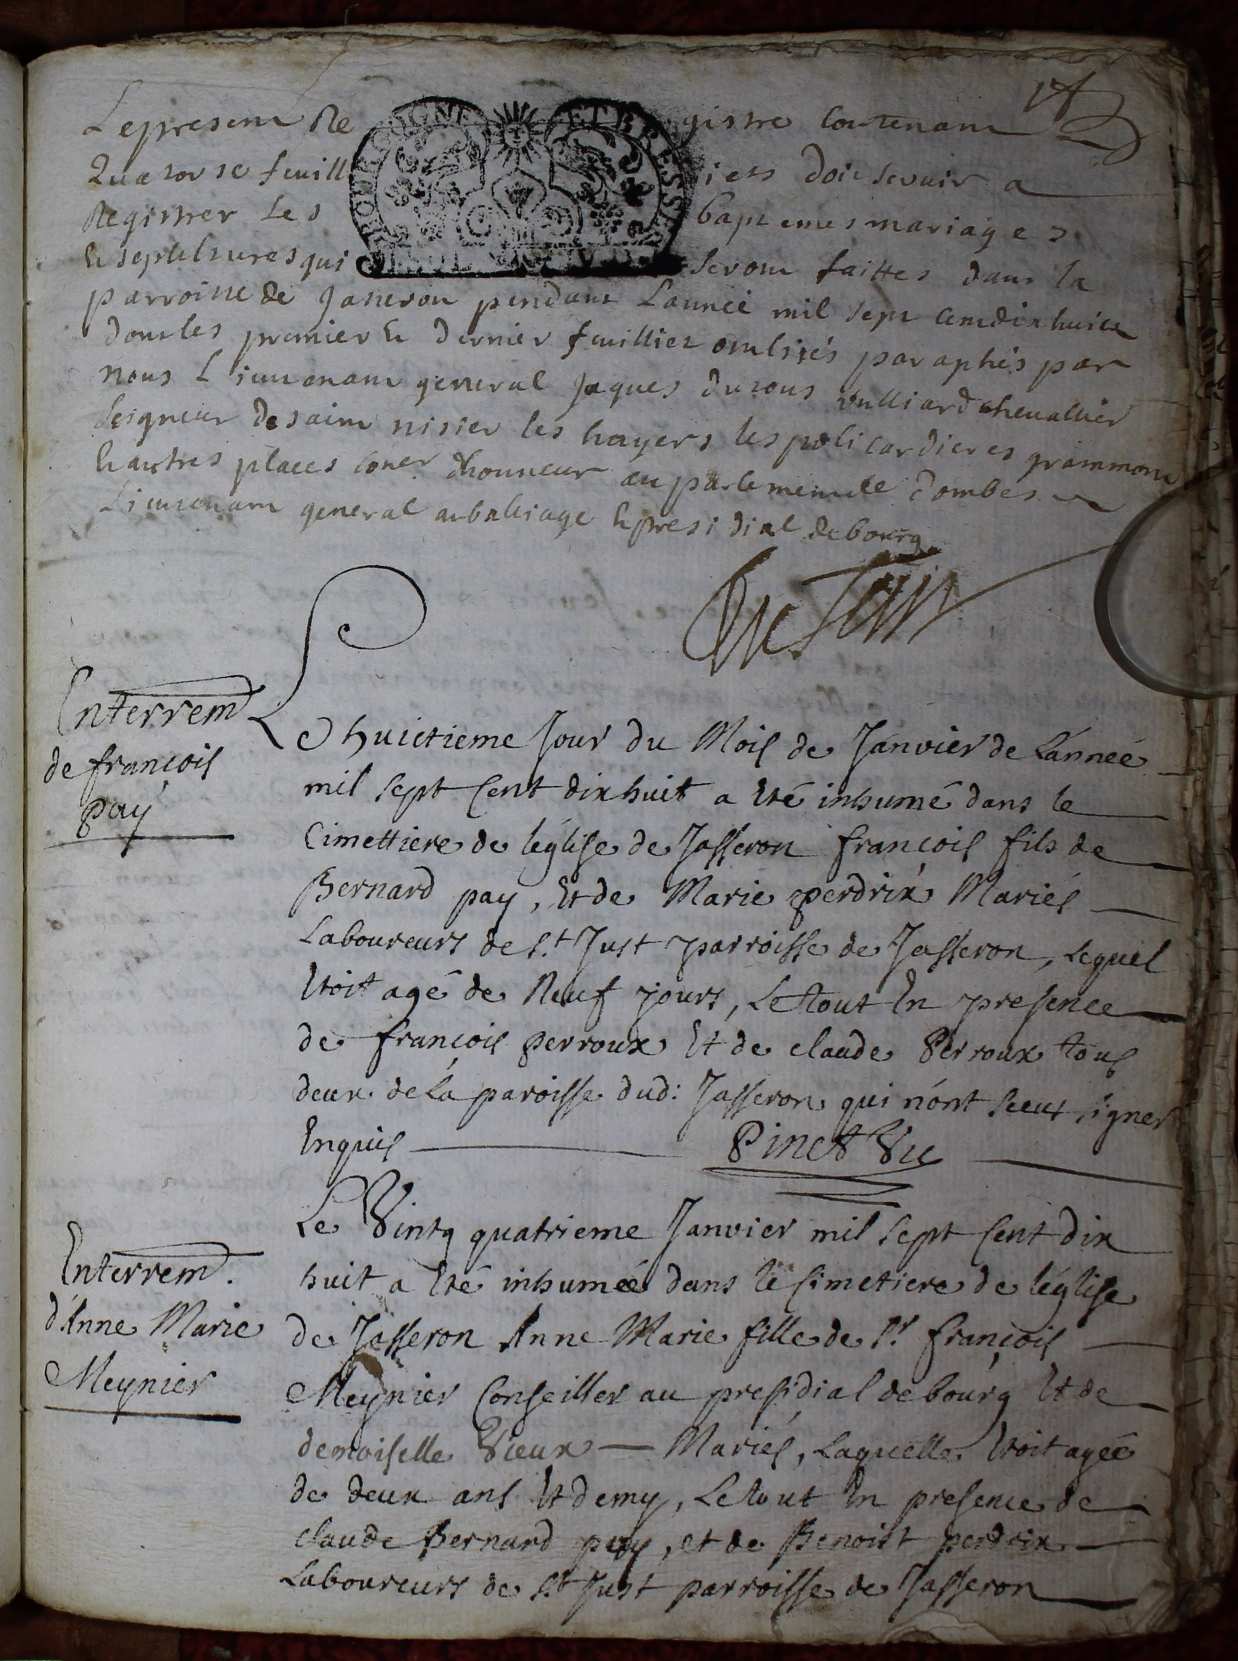 Le present Registre contenant
Quatorse feuilliets doit servir a
Registrer les baptemes mariages
et sepultures qui seront faittes dans la
parroisse de Jasseron pendant l'année mil sept cent dix huict
dont les premier et dernier feuilliet ont etés paraphés par
nous Lieutenant general Jaques vulliard chevallier
seigneur de saint nisier les hayers les policardieres grammont
et autres places coner d'honneur au parlement de dombes
Lieutenant general au balliage et presidial de bourg
Enterrem
de françois
pay
Le huictieme Jour du Mois de Janvier de L'année
mil sept Cent dix huit a Eté inhumé dans le
Cimettiere de l'église de Jasseron françois fils de
Bernard pay, Et de Marie perdrix Mariés
Laboureurs de St Just parroisse de Jasseron, Lequel
Etoit agé de Neuf jours, Le tout En presence
de françois perroux Et de claude Perroux tous
deux de La paroisse dud: Jasseron qui n'ont sceut signer
Enquis Pinet Vic
Enterrem.
d'Anne Marie
Meynier
Le Vintq quatrieme Janvier mil sept Cent dix
huit a Eté inhumée dans le Cimetiere de l'église
de Jasseron Anne Marie fille de Sr. françois
Meynier Conseiller au presidial de bourg Et de
demoiselle Vieux Mariés, Laquelle Etoit agée
de deux ans Et demy, Le tout En presence de
claude Bernard pay, et de Benoist perdrix
Laboureurs de St Just parroisse de Jasseron